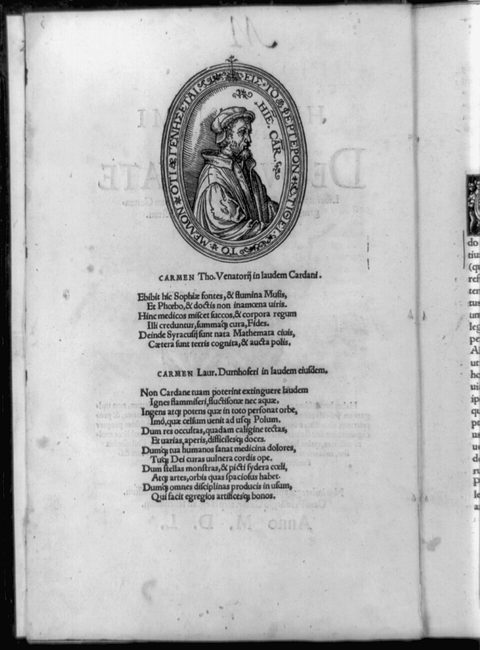 HIE. CAR.
CARMEN Tho. Venatorij in laudem Cardani.
Ebibit hic Sophiæ fontes, & flumina Musis,
Et Phœbo, & doctis non inamœna uiris.
Hinc medicos miscet succos, & corpora regum
Illi creduntur, summaq; cura, Fides.
Deinde Syracusij sunt nata Mathemata ciuis,
Cætera sunt terris cognita, & aucta polis.
CARMEN Laur. Durnhoferi in laudem eiusdem.
Non Cardane tuam poterint extinguere laudem
Ignes flammiferi, fluctisonæ nec aquæ.
Ingens atq; potens quæ in toto personat orbe,
Imò, quæ celsum uenit ad usq; Polum.
Dum res occultas, quadam caligine tectas,
Et uarias, aperis, difficilesq; doces.
Dumq; tua humanos sanat medicina dolores,
Tusq; Dei curas uulnera cordis ope.
Dum stellas monstras, & picti sydera cœli,
Atq; artes, orbis quas spaciosus habet.
Dumq; omnes disciplinas producis in usum,
Qui facit egregios artificesq; bonos.